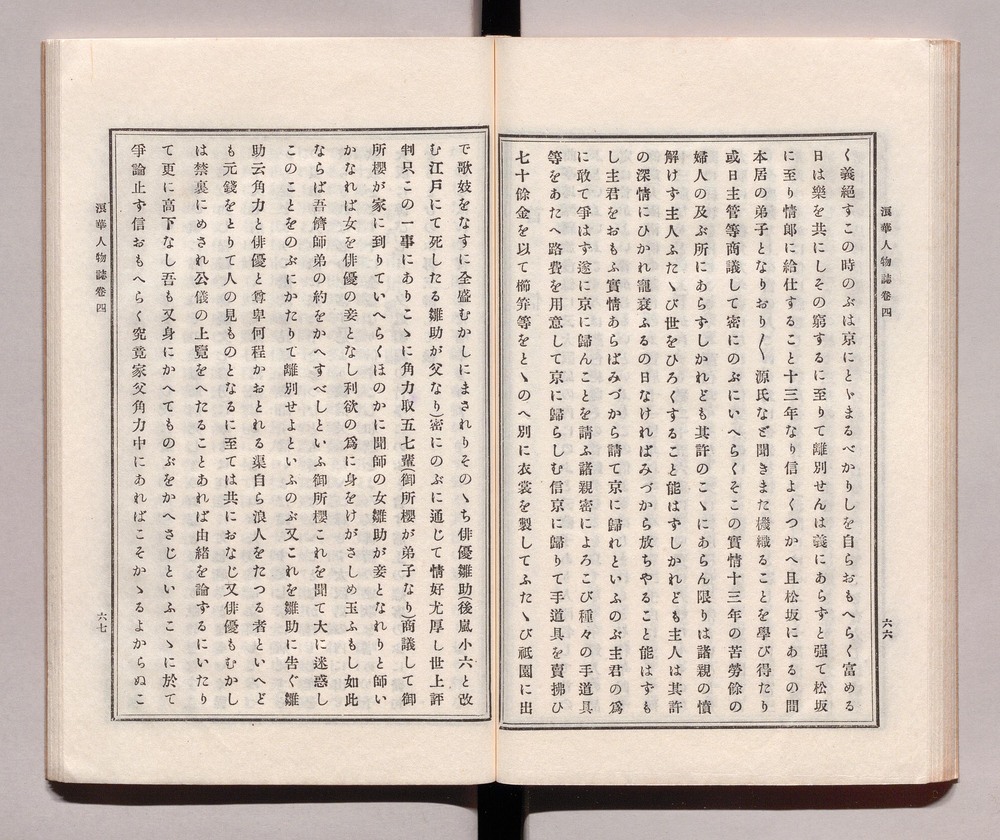 浪華人物誌卷四
六六
く義絕すこの時のぶは京にとゞまるべかりしを自らおもへらく富める
日は樂を共にしその窮するに至りて離別せんは義にあらずと强て松坂
に至り情郞に給仕すること十三年なり信よくつかへ且松坂にあるの間
本居の弟子となりおり〱源氏など聞きまた機織ることを學び得たり
或日主管等商議して密にのぶにいへらくそこの實情十三年の苦勞餘の
婦人の及ぶ所にあらずしかれども其許のこゝにあらん限りは諸親の憤
解けす主人ふたゝび世をひろくすること能はずしかれども主人は其許
の深情にひかれ寵衰ふるの日なければみづから放ちやること能はずも
し主君をおもふ實情あらばみづから請て京に歸れといふのぶ主君の爲
に敢て爭はす遂に京に歸んことを請ふ諸親密によろこび種々の手道具
等をあたへ路費を用意して京に歸らしむ信京に歸りて手道具を賣拂ひ
七十餘金を以て櫛笄等をとゝのへ別に衣裳を製してふたゝび祗園に出
で歌妓をなすに全盛むかしにまされりそのゝち俳優雛助(後嵐小六と改
む江戶にて死したる雛助が父なり)密にのぶに通じて情好尤厚し世上評
判只この一事にありこゝに角力取五七輩(御所櫻が弟子なり)商議して御
所櫻が家に到りていへらくほのかに聞師の女雛助が妾となれりと師い
かなれば女を俳優の妾となし利欲の爲に身をけがさしめ玉ふもし如此
ならば吾儕師弟の約をかへすべしといふ御所櫻これを聞て大に迷惑し
このことをのぶにかたりて離別せよといふのぶ又これを雛助に告ぐ雛
助云角力と俳優と尊卑何程かおとれる渠自ら浪人をたつる者といへど
も元錢をとりて人の見ものとなるに至ては共におなじ又俳優もむかし
は禁裏にめされ公儀の上覽をへたることあれば由緖を論ずるにいたり
て更に高下なし吾も又身にかへてものぶをかへさじといふこゝに於て
爭論止す信おもへらく究竟家父角力中にあればこそかゝるよからぬこ
浪華人物誌卷四
六七